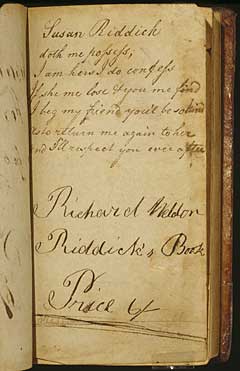 Susan Riddick
doth me possess,
I am hers I do confess
If she me lose & you me find
I beg my friend you'll be so kind
as to return me again to her
and I'll respect you ever after
Richard Weldon
Riddick's Book
Price